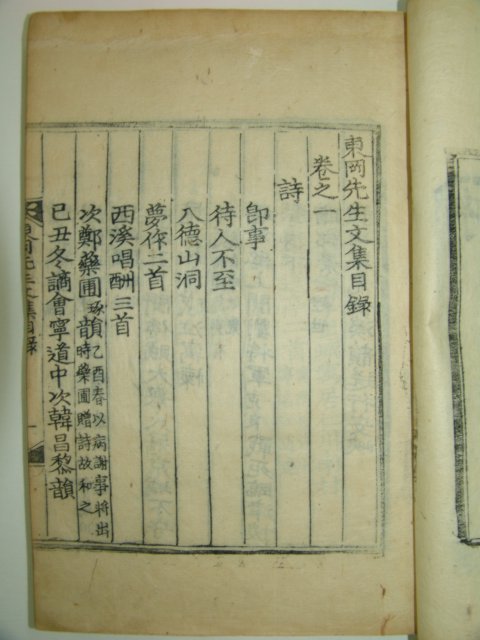 東岡先生文集目録
卷之一
詩
卽事
待人不至
入德山洞
夢作二首
西溪唱酬三首
次鄭藥圃琢韻乙酉春以病謝事將出時藥圃贈詩故和之
己丑冬謫會寧道中次韓昌黎韻
東岡先生文集目録
一